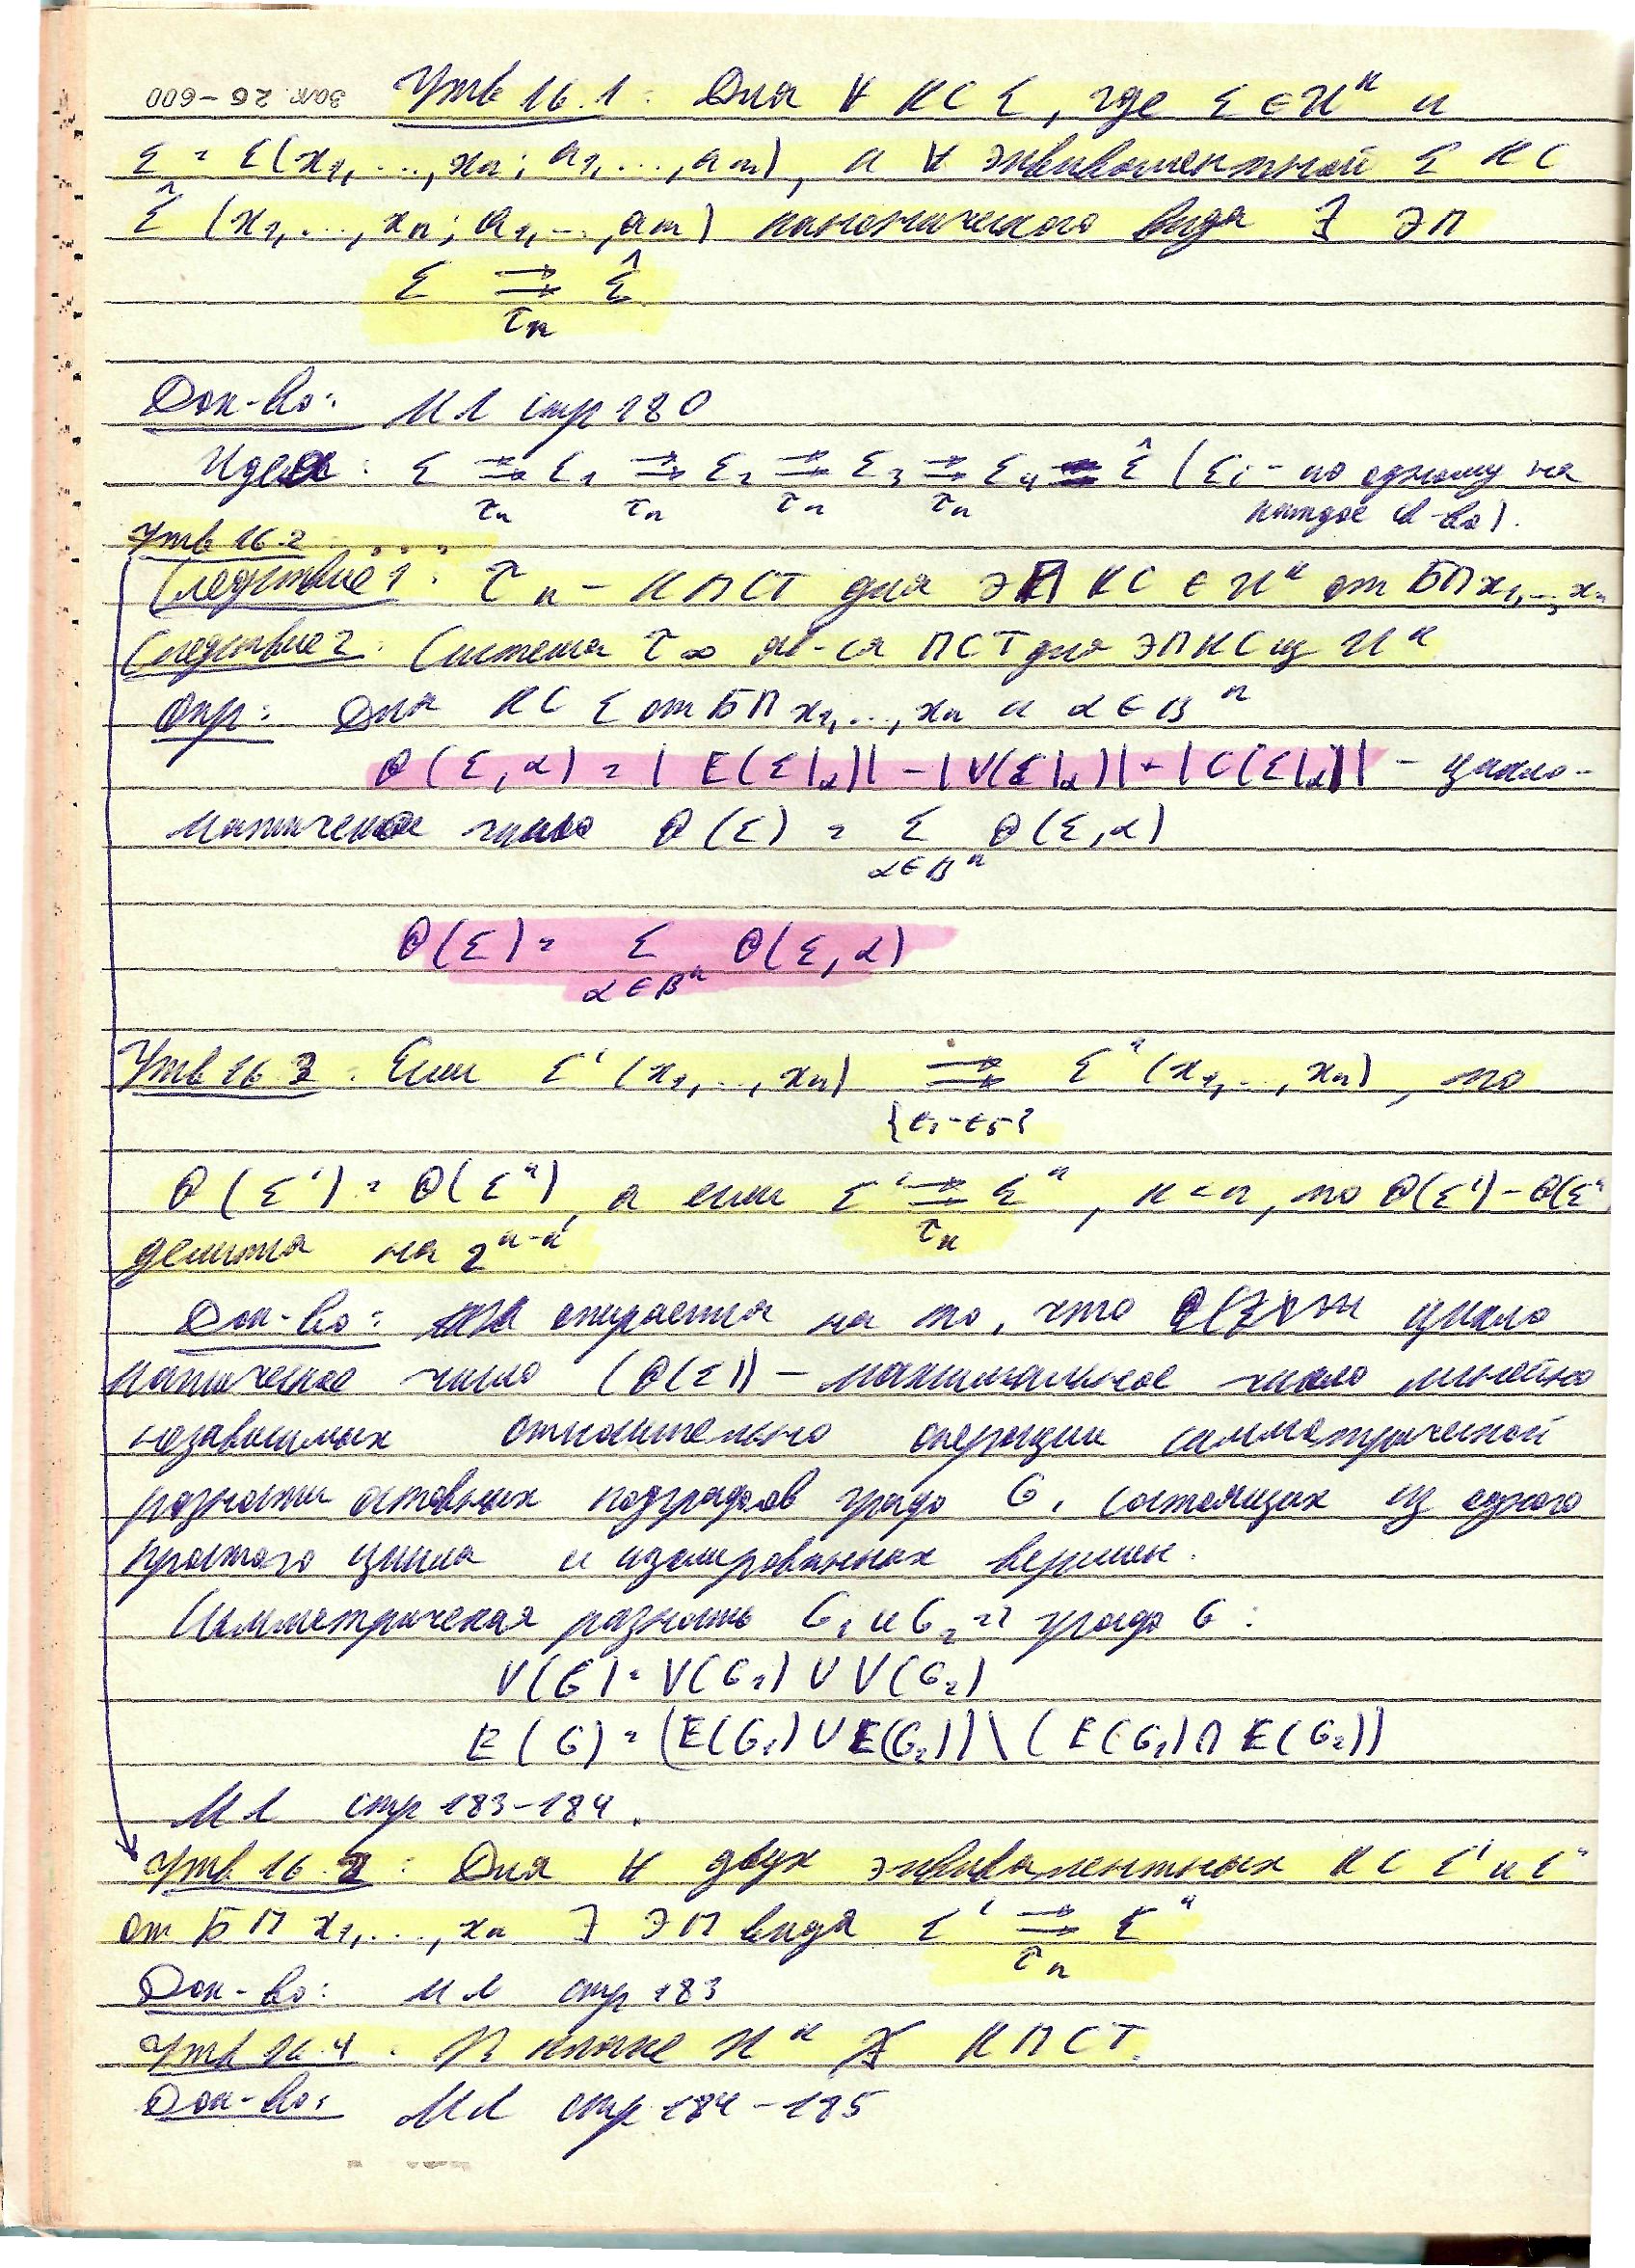 Зак. 26-600
Утв 16.1: Для ∀ КС Σ, где Σ ∈ U^к и
Σ = Σ(x₁,...,xₙ; a₁,...,aₘ), и ∀ эквивалентной Σ КС
Σ̂ (x₁,...,xₙ; a₁,...,aₘ) канонического вида ∃ ЭП
Σ ⇉ Σ̂
τₙ
Док-во: МЛ стр 180
Идея: Σ ⇉ Σ₁ ⇉ Σ₂ ⇉ Σ₃ ⇉ Σ₄ = Σ̂ (Σᵢ - по одному на
τₙ τₙ τₙ τₙ каждое св-во).
Утв 16.2 ...
Следствие 1: τₙ - КПСТ для ЭП КС ∈ U^к от БП x₁,...,xₙ
Следствие 2: Система τ∞ яв-ся ПСТ для ЭП КС из U^к
Опр: Для КС Σ от БП x₁,...,xₙ и α ∈ B^n
Θ(Σ,α) = |E(Σ|α)| - |V(Σ|α)| + |C(Σ|α)| - цикло-
матическое число Θ(Σ) = Σ Θ(Σ,α)
α∈B^n
Θ(Σ) = Σ Θ(Σ,α)
α∈B^n
Утв 16.3. Если Σ'(x₁,...,xₙ) ⇉ Σ''(x₁,...,xₙ), то
{t₁-t₅}
Θ(Σ') = Θ(Σ''), а если Σ' ⇉ Σ'', к < n, то Θ(Σ') - Θ(Σ''
τₖ
делится на 2^{n-к}
Док-во: опирается на то, что цикло
матическое число (Θ(Σ)) - максимальное число линейно
независимых относительно операции симметрической
разности остовных подграфов графа G, состоящих из одного
простого цикла и изолированных вершин.
Симметрическая разность G₁ и G₂ = графа G:
V(G) = V(G₁) ∪ V(G₂)
E(G) = (E(G₁) ∪ E(G₂)) \ (E(G₁) ∩ E(G₂))
МЛ стр 183-184.
Утв 16.2: Для ∀ двух эквивалентных КС Σ' и Σ''
от БП x₁,...,xₙ ∃ ЭП вида Σ' ⇉ Σ''
τₙ
Док-во: МЛ стр 183
Утв 16.4. В классе U^к ∄ КПСТ.
Док-во: МЛ стр 184-185